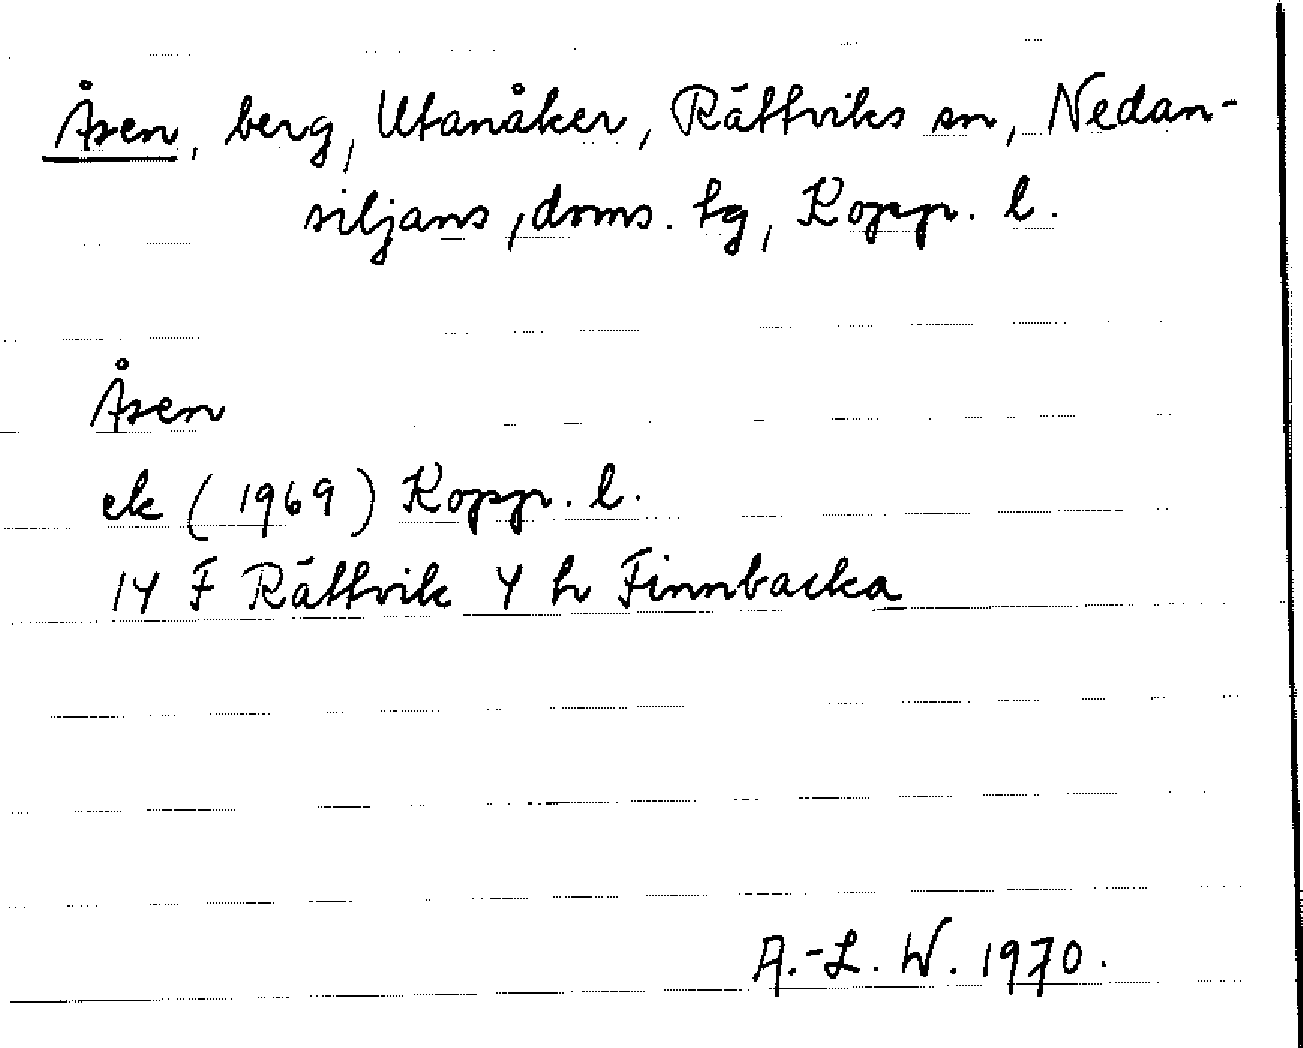 Åsen, berg, Utanåker, Rättviks sn, Nedan-
siljans, doms. tg, Kopp. l.
Åsen
ek (1969) Kopp. l.
14 F Rättvik 4 h Finnbacka
A.-L. W. 1970.